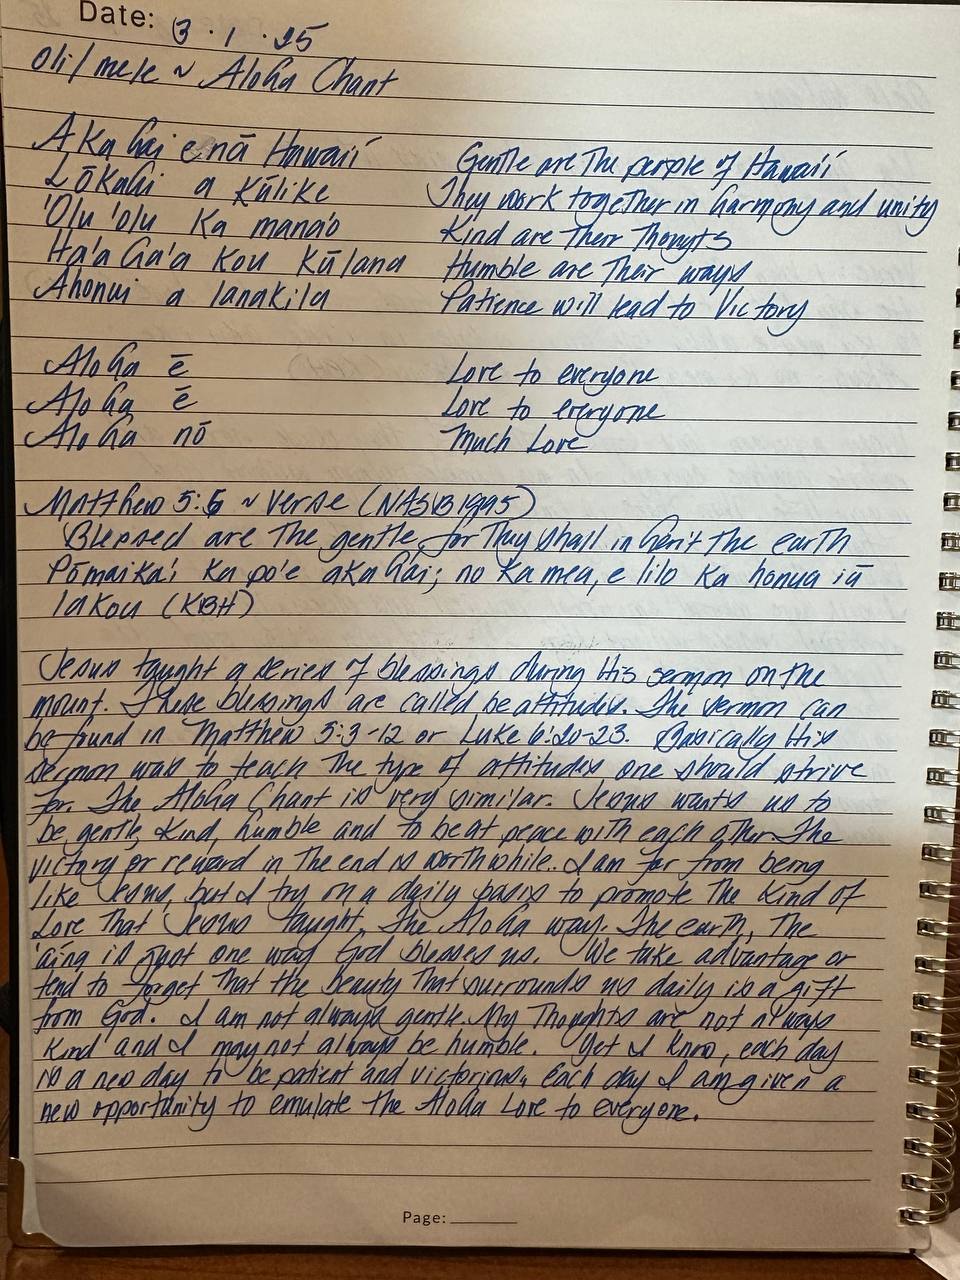 Date: 3 · 1 · 25
Oli/mele ~ Aloha Chant
Akahai enā Hawai'i Gentle are The people of Hawai'i
Lōkahi a Kūlike They work together in harmony and unity
'Olu 'olu Ka mana'o Kind are Their Thougts
Ha'a ha'a Kou Kūlana Humble are Their ways
Ahonui a lanakila Patience will lead to Victory
Aloha ē Love to everyone
Aloha ē Love to everyone
Aloha nō Much Love
Matthew 5:5 ~ Verse (NASB1995)
Blessed are The gentle, for They shall inherit the earth
Pōmaika'i Ka po'e akahai; no Ka mea, e lilo Ka honua iā
lakou (KBH)
Jesus taught a series of blessings during His sermon on the
mount. These blessings are called beattitudes. The sermon can
be found in Matthew 5:3-12 or Luke 6:20-23. Basically His
sermon was to teach The type of attitudes one should strive
for. The Aloha Chant is very similar. Jesus wants us to
be gentle, Kind, humble and to be at peace with each other. The
victory or reward in The end is worthwhile.. I am far from being
like Jesus, but I try on a daily basis to promote The Kind of
Love That Jesus taught, The Aloha way. The earth, The
'aina is just one way God blesses us. We take advantage or
tend to forget That the beauty That surrounds us daily is a gift
from God. I am not always gentle. My Thoughts are not always
Kind and I may not always be humble. Yet I Know, each day
is a new day to be patient and victorious. Each day I am given a
new opportunity to emulate the Aloha Love to everyone.
Page: